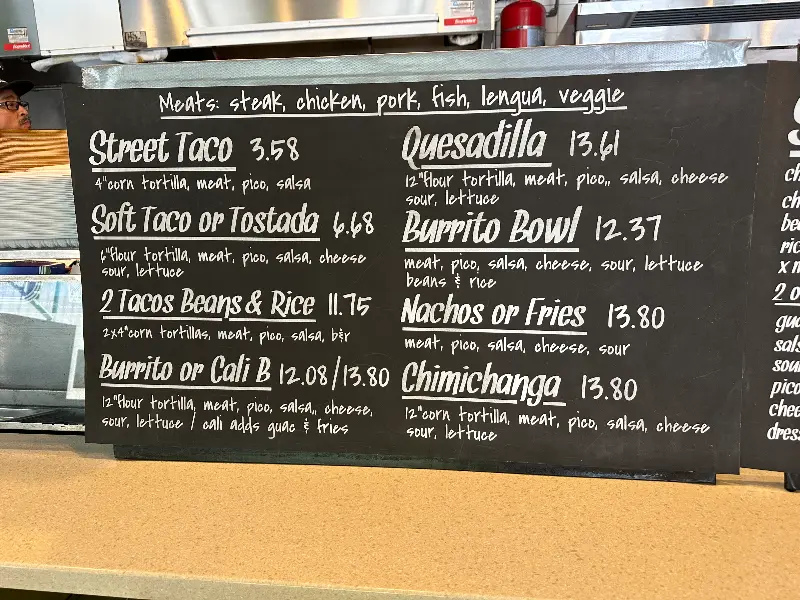 Meats: steak, chicken, pork, fish, lengua, veggie
Street Taco 3.58
4"corn tortilla, meat, pico, salsa
Soft Taco or Tostada 6.68
6"flour tortilla, meat, pico, salsa, cheese
sour, lettuce
2 Tacos Beans & Rice 11.75
2x4"corn tortillas, meat, pico, salsa, b&r
Burrito or Cali B 12.08/13.80
12"flour tortilla, meat, pico, salsa,, cheese,
sour, lettuce / cali adds guac & fries
Quesadilla 13.61
12"flour tortilla, meat, pico,, salsa, cheese
sour, lettuce
Burrito Bowl 12.37
meat, pico, salsa, cheese, sour, lettuce
beans & rice
Nachos or Fries 13.80
meat, pico, salsa, cheese, sour
Chimichanga 13.80
12"corn tortilla, meat, pico, salsa, cheese
sour, lettuce
2 o
pico